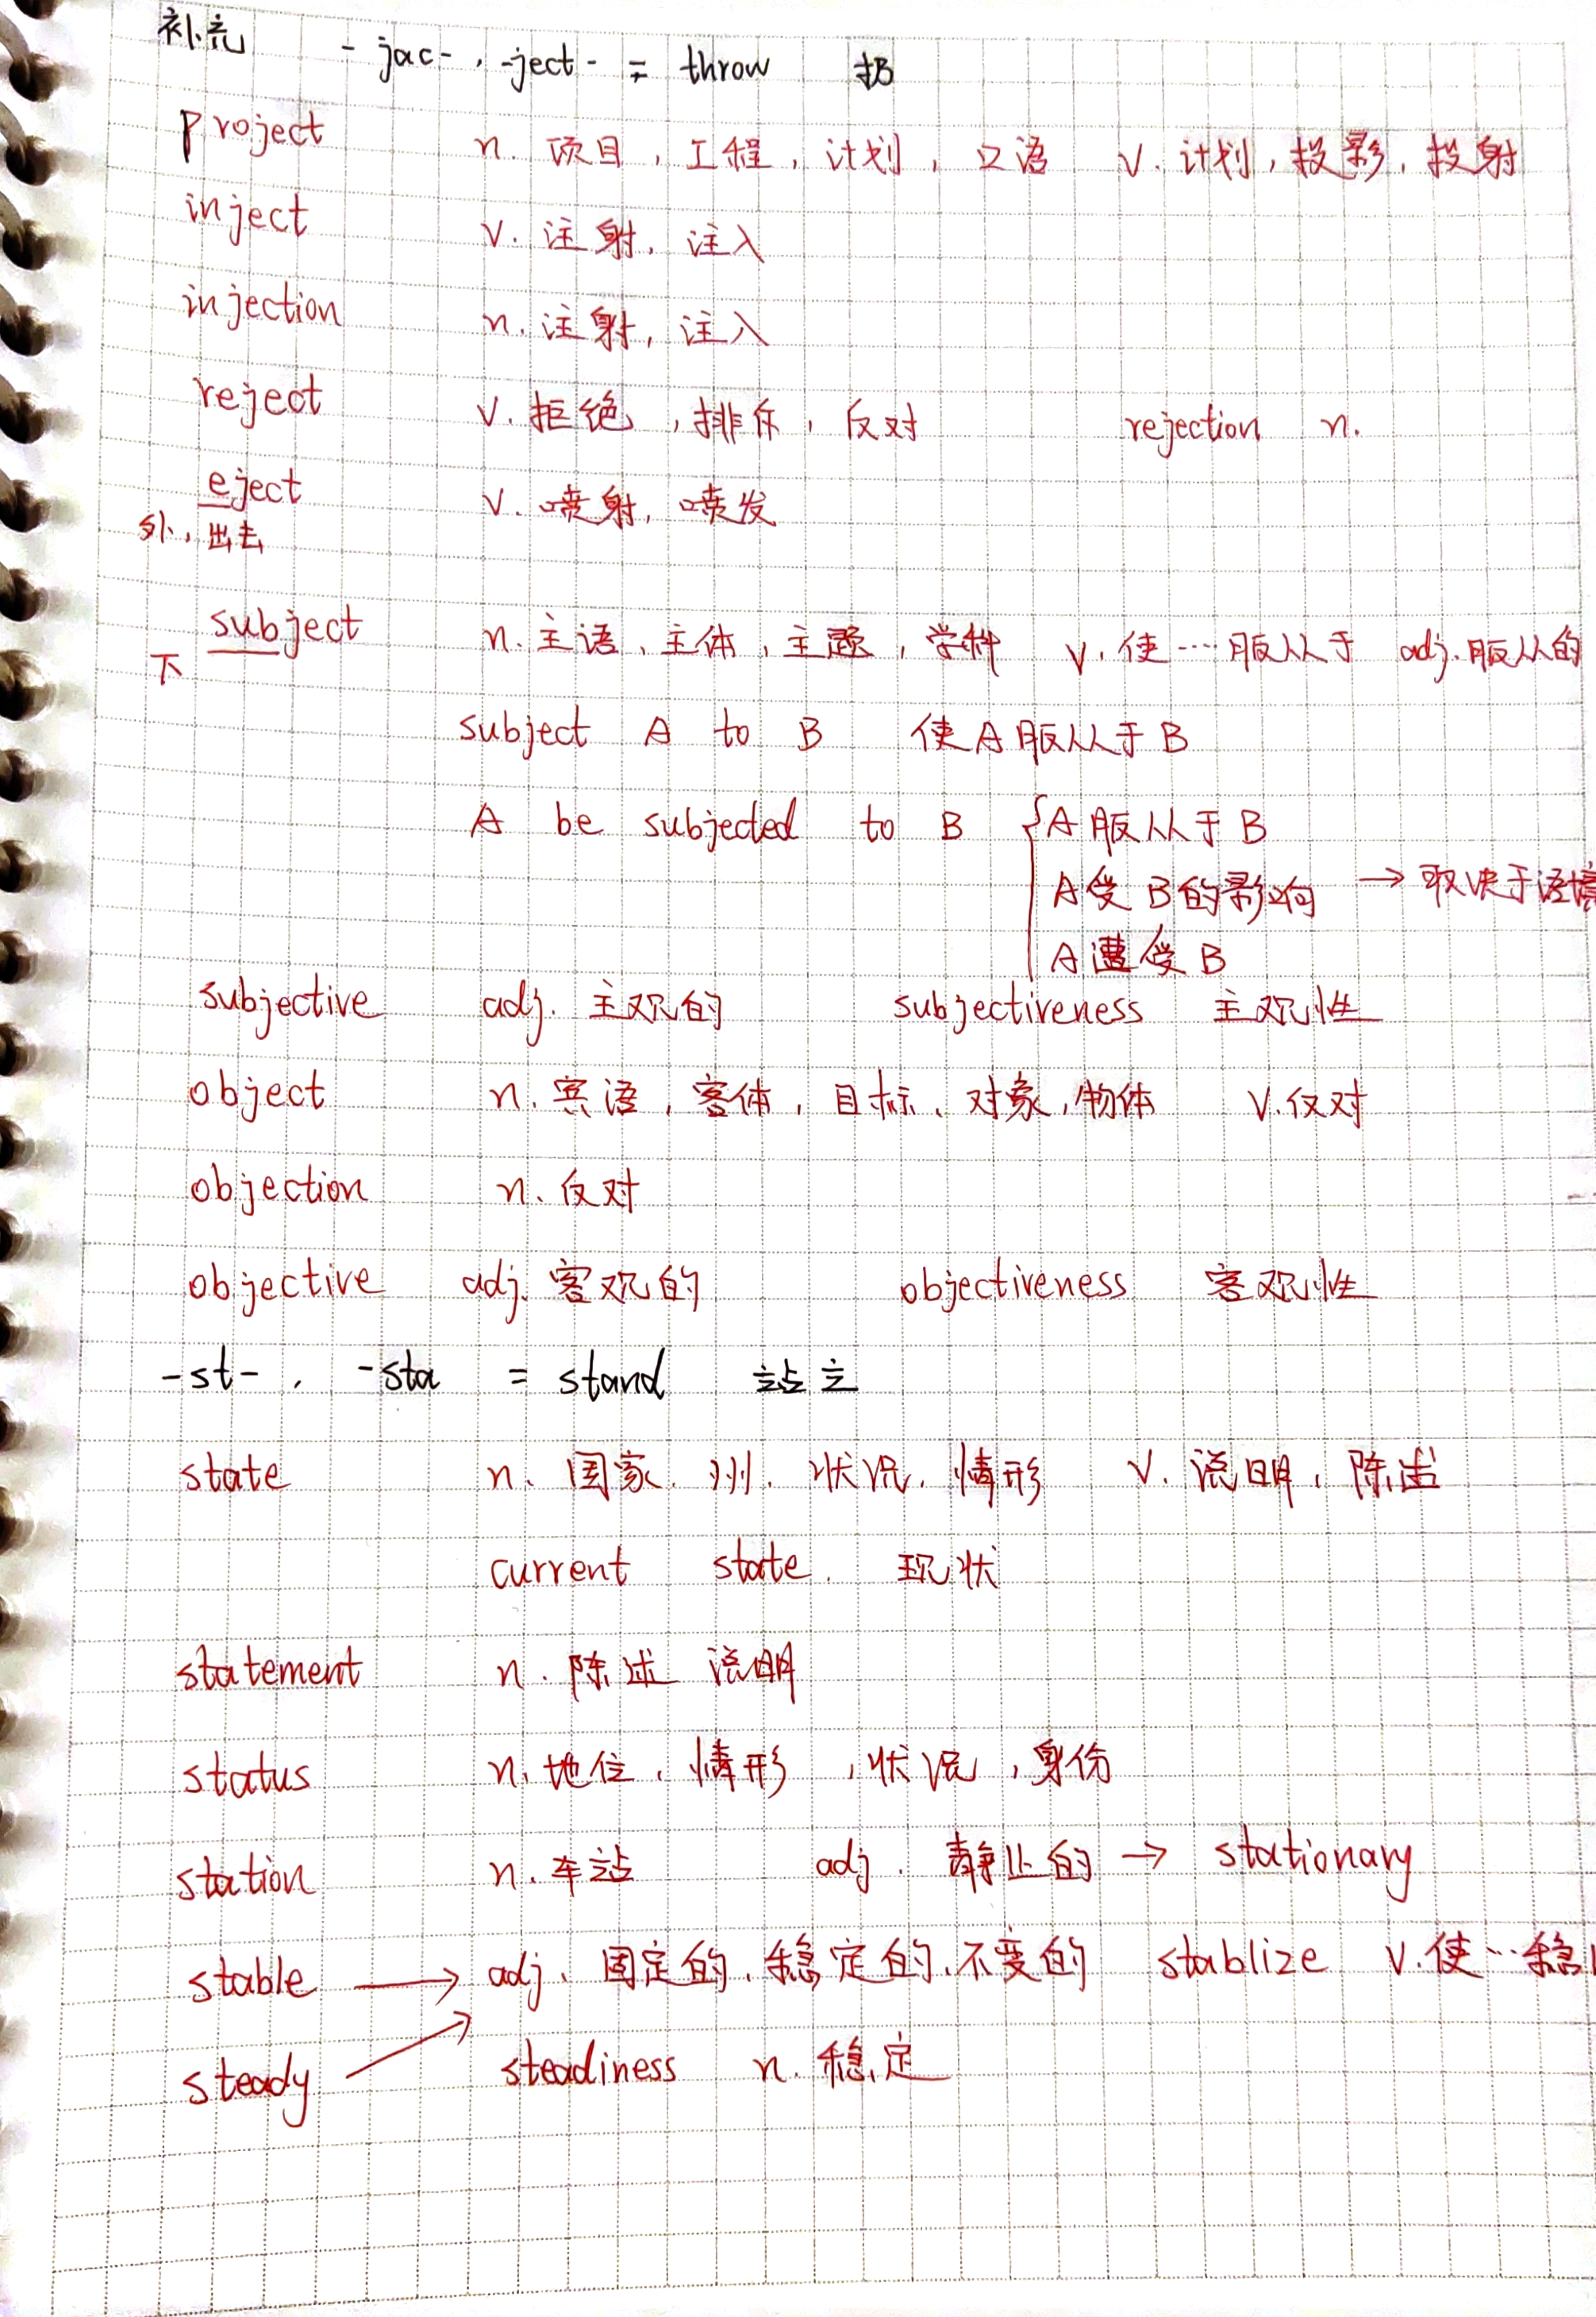 补充 -jac-, -ject- = throw 扔
project n. 项目, 工程, 计划, 口语 v. 计划, 投影, 投射
inject v. 注射, 注入
injection n. 注射, 注入
reject v. 拒绝, 排斥, 反对 rejection n.
eject v. 喷射, 喷发
外, 出去
subject n. 主语, 主体, 主题, 学科 v. 使…服从于 adj. 服从的
下
subject A to B 使A服从于B
A be subjected to B { A服从于B
A受B的影响 → 取决于语境
A遭受B
subjective adj. 主观的 subjectiveness 主观性
object n. 宾语, 客体, 目标, 对象, 物体 v. 反对
objection n. 反对
objective adj. 客观的 objectiveness 客观性
-st-, -sta = stand 站立
state n. 国家, 州, 状况, 情形 v. 说明, 陈述
current state 现状
statement n. 陈述 说明
status n. 地位, 情形, 状况, 身份
station n. 车站 adj. 静止的 → stationary
stable → adj. 固定的, 稳定的, 不变的 stablize v. 使…稳
steady steadiness n. 稳定